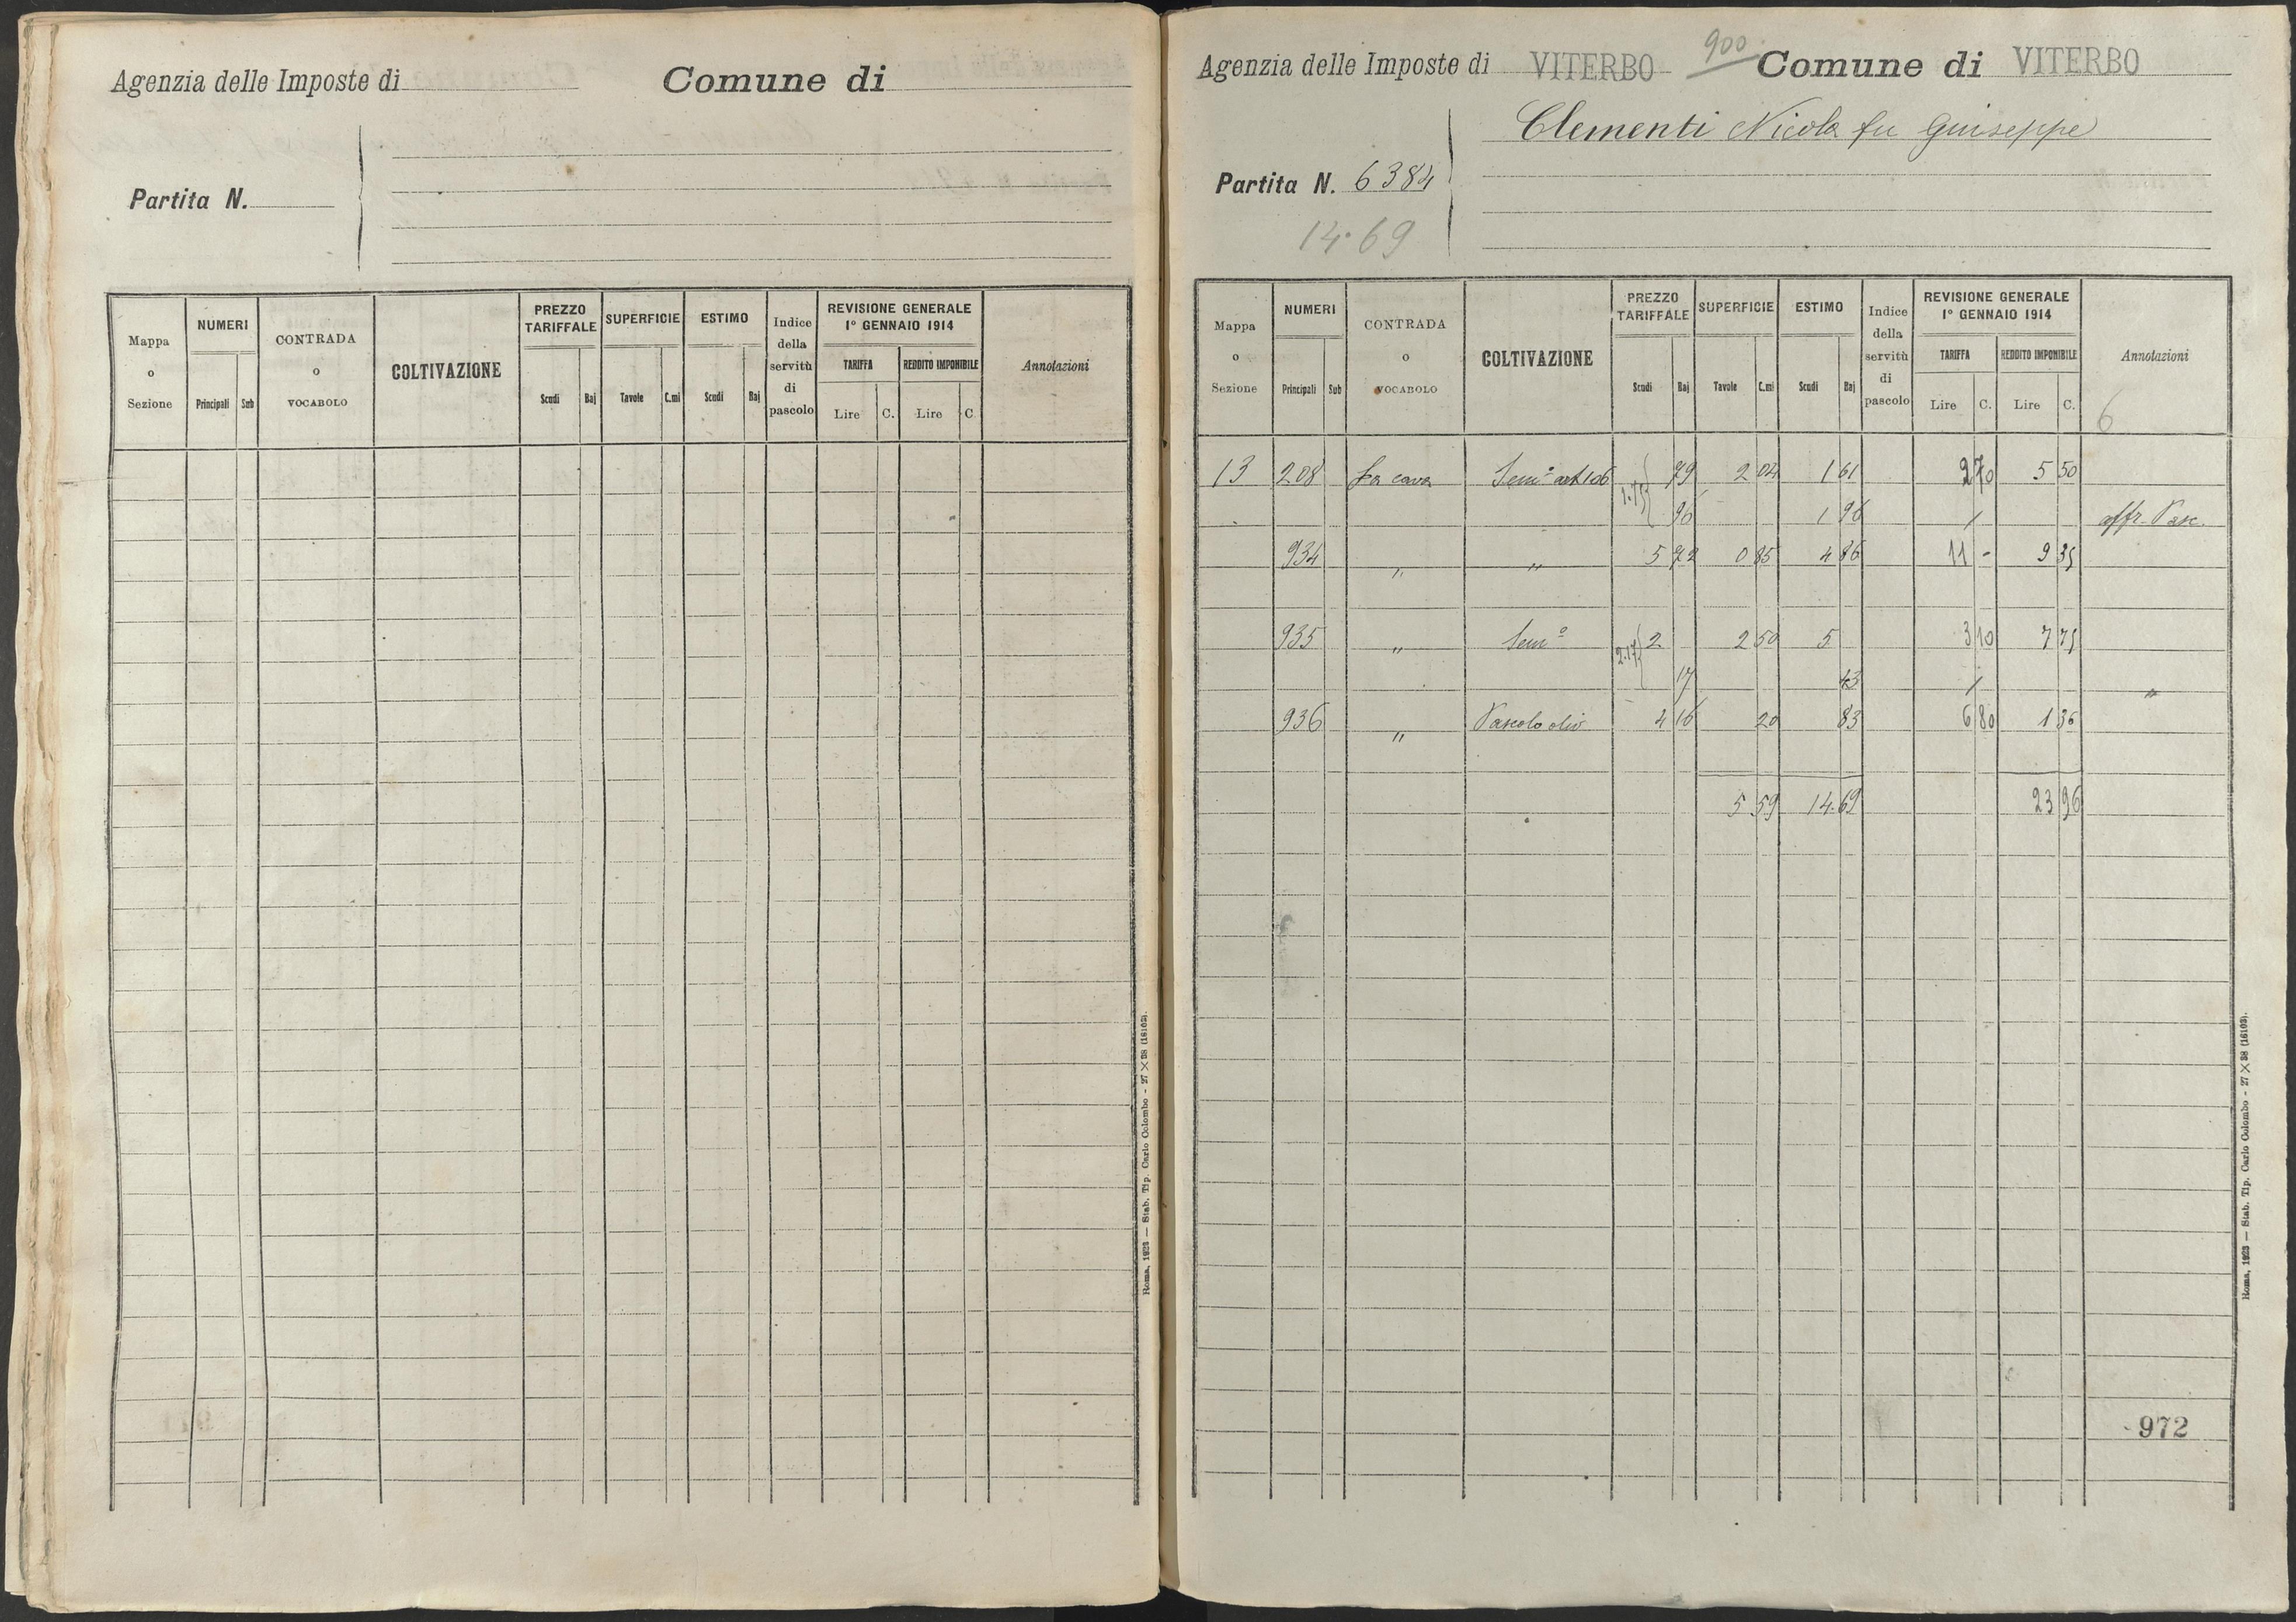 Agenzia delle Imposte di Comune di
Partita N.
Mappa o Sezione NUMERI Principali Sub CONTRADA o VOCABOLO COLTIVAZIONE PREZZO TARIFFALE Scudi Baj SUPERFICIE Tavole C.mi ESTIMO Scudi Baj Indice della servitù di pascolo REVISIONE GENERALE 1° GENNAIO 1914 TARIFFA Lire C. REDDITO IMPONIBILE Lire C. Annotazioni
Roma, 1923 — Stab. Tip. Carlo Colombo - 27 × 38 (16103).
Agenzia delle Imposte di VITERBO 900 Comune di VITERBO
Clementi Nicola fu Giuseppe
Partita N. 6384
14.69
Mappa o Sezione NUMERI Principali Sub CONTRADA o VOCABOLO COLTIVAZIONE PREZZO TARIFFALE Scudi Baj SUPERFICIE Tavole C.mi ESTIMO Scudi Baj Indice della servitù di pascolo REVISIONE GENERALE 1° GENNAIO 1914 TARIFFA Lire C. REDDITO IMPONIBILE Lire C. Annotazioni
6
13 208 La cava Sem° art 106 1.75 79 2 04 1 61 2 70 5 50
96 1 96 / affr. Pasc.
934 " " 5 72 0 85 4 86 11 - 9 35
935 " Sem° 2.17 2 2 50 5 3 10 7 75
17 43 / "
936 " Pascolo oliv 4 16 20 83 6 80 1 36
5 59 14.69 23 96
972
Roma, 1923 — Stab. Tip. Carlo Colombo - 27 × 38 (16103).